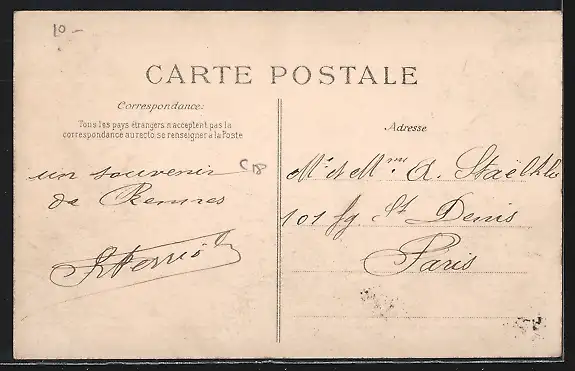 10 –
CARTE POSTALE
Correspondance:
Tous les pays étrangers n'acceptent pas la
correspondance au recto, se renseigner à la Poste
un souvenir
de Rennes
Adresse
Mr et Mme A.
101 fg. St Denis
Paris